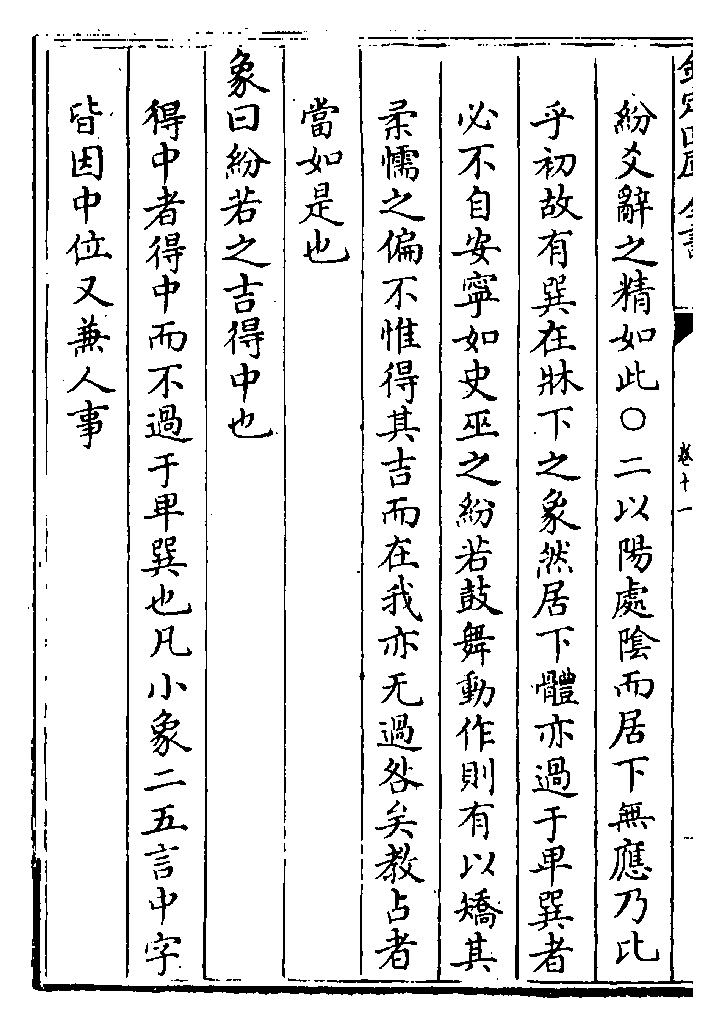 欽定四庫全書
卷十一
紛爻辭之精如此○二以陽處陰而居下無應乃比
乎初故有巽在牀下之象然居下體亦過于卑巽者
必不自安寧如史巫之紛若鼓舞動作則有以矯其
柔懦之偏不惟得其吉而在我亦无過咎矣教占者
當如是也
象曰紛若之吉得中也
得中者得中而不過于卑巽也凡小象二五言中字
皆因中位又兼人事